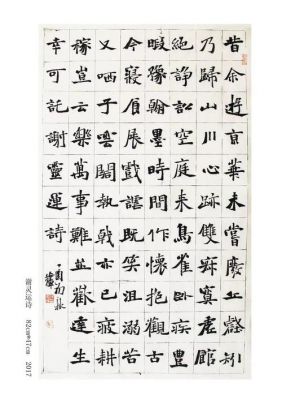 昔余遊京華未嘗廢丘壑矧
乃歸山川心跡雙寂寞虛館
絕諍訟空庭來鳥雀卧疾豐
暇豫翰墨時間作懷抱觀古
今寢食展戲謔既笑沮溺苦
又哂子雲閣執戟亦已疲耕
稼豈云樂萬事難並歡達生
幸可託謝靈運詩
丁酉初秋
谢灵运诗 82cm×47cm 2017